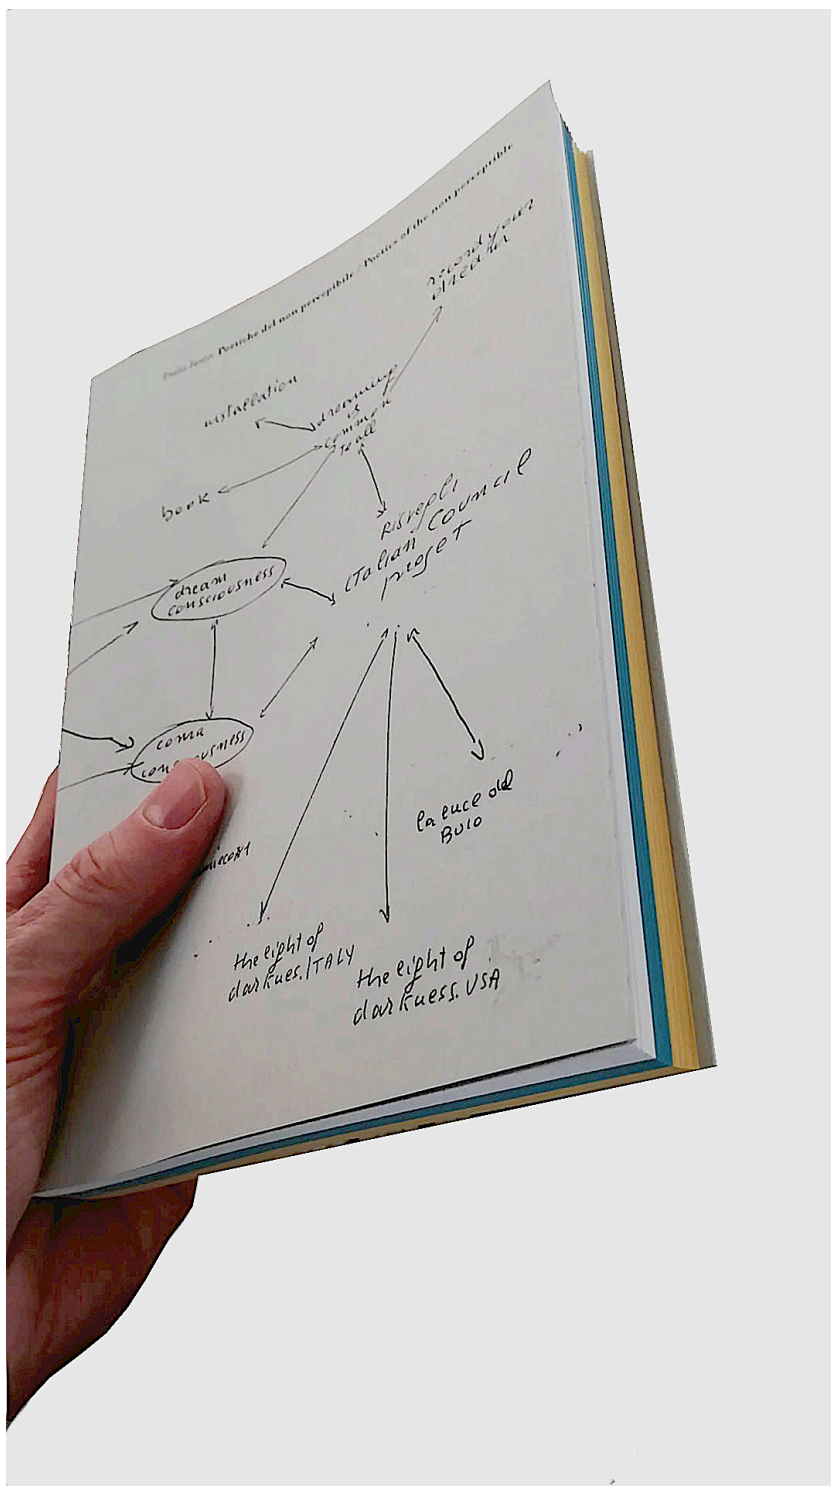 Poetiche del non perceptibile / Poetics of the non perceptible
record your
dreams
installation
dreaming
is
common
to all
book
Risvegli
Italian Council
project
dream
consciousness
coma
consciousness
la luce del
Buio
the light of
darknes. ITALY
the light of
darkness. USA